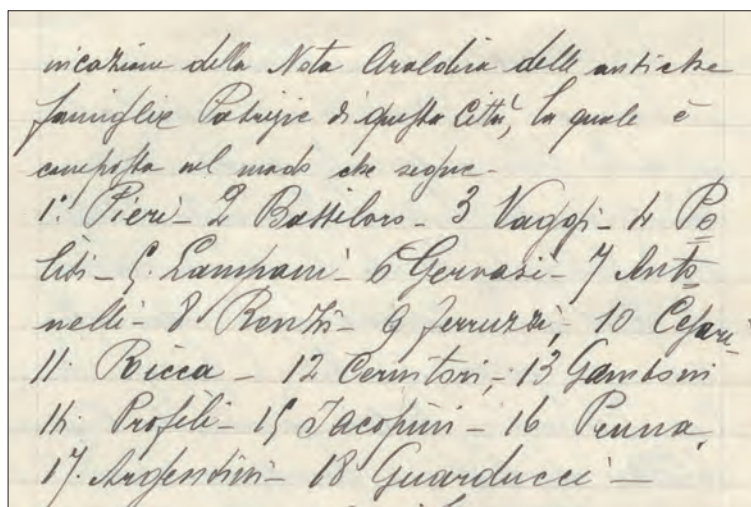 nicazione della Nota Araldica delle antiche
famiglie Patrizie di questa Città, la quale è
composta nel modo che segue-
1.° Pieri- 2 Battiloro- 3 Vaggi- 4 Po
liti- 5. Lampani- 6 Gervasi- 7 Anto
nelli- 8 Renzi- 9 Ferruzzi; 10 Cesari-
11. Ricca - 12 Cernitori,- 13 Gamboni
14. Profili- 15 Jacopini- 16 Penna,
17. Argentini- 18 Guarducci-